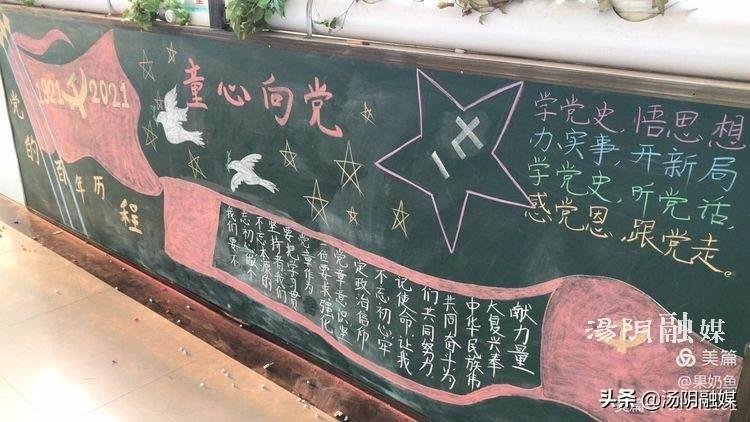 1921 2021
党的百年历程
童心向党
七一
学党史,悟思想
办实事,开新局
学党史,听党话,
感党恩,跟党走。
我们要不
忘初心做个
不忘本源的
坚持者,我们
要把学习贯
党章作为
一位要求,强化
党章意识,坚
定政治信仰
不忘初心,牢
记使命,让我
们共同努力
共同奋斗,为
中华民族伟
大复兴奉
献力量
汤阴融媒
美篇
@果奶鱼
头条 @汤阴融媒